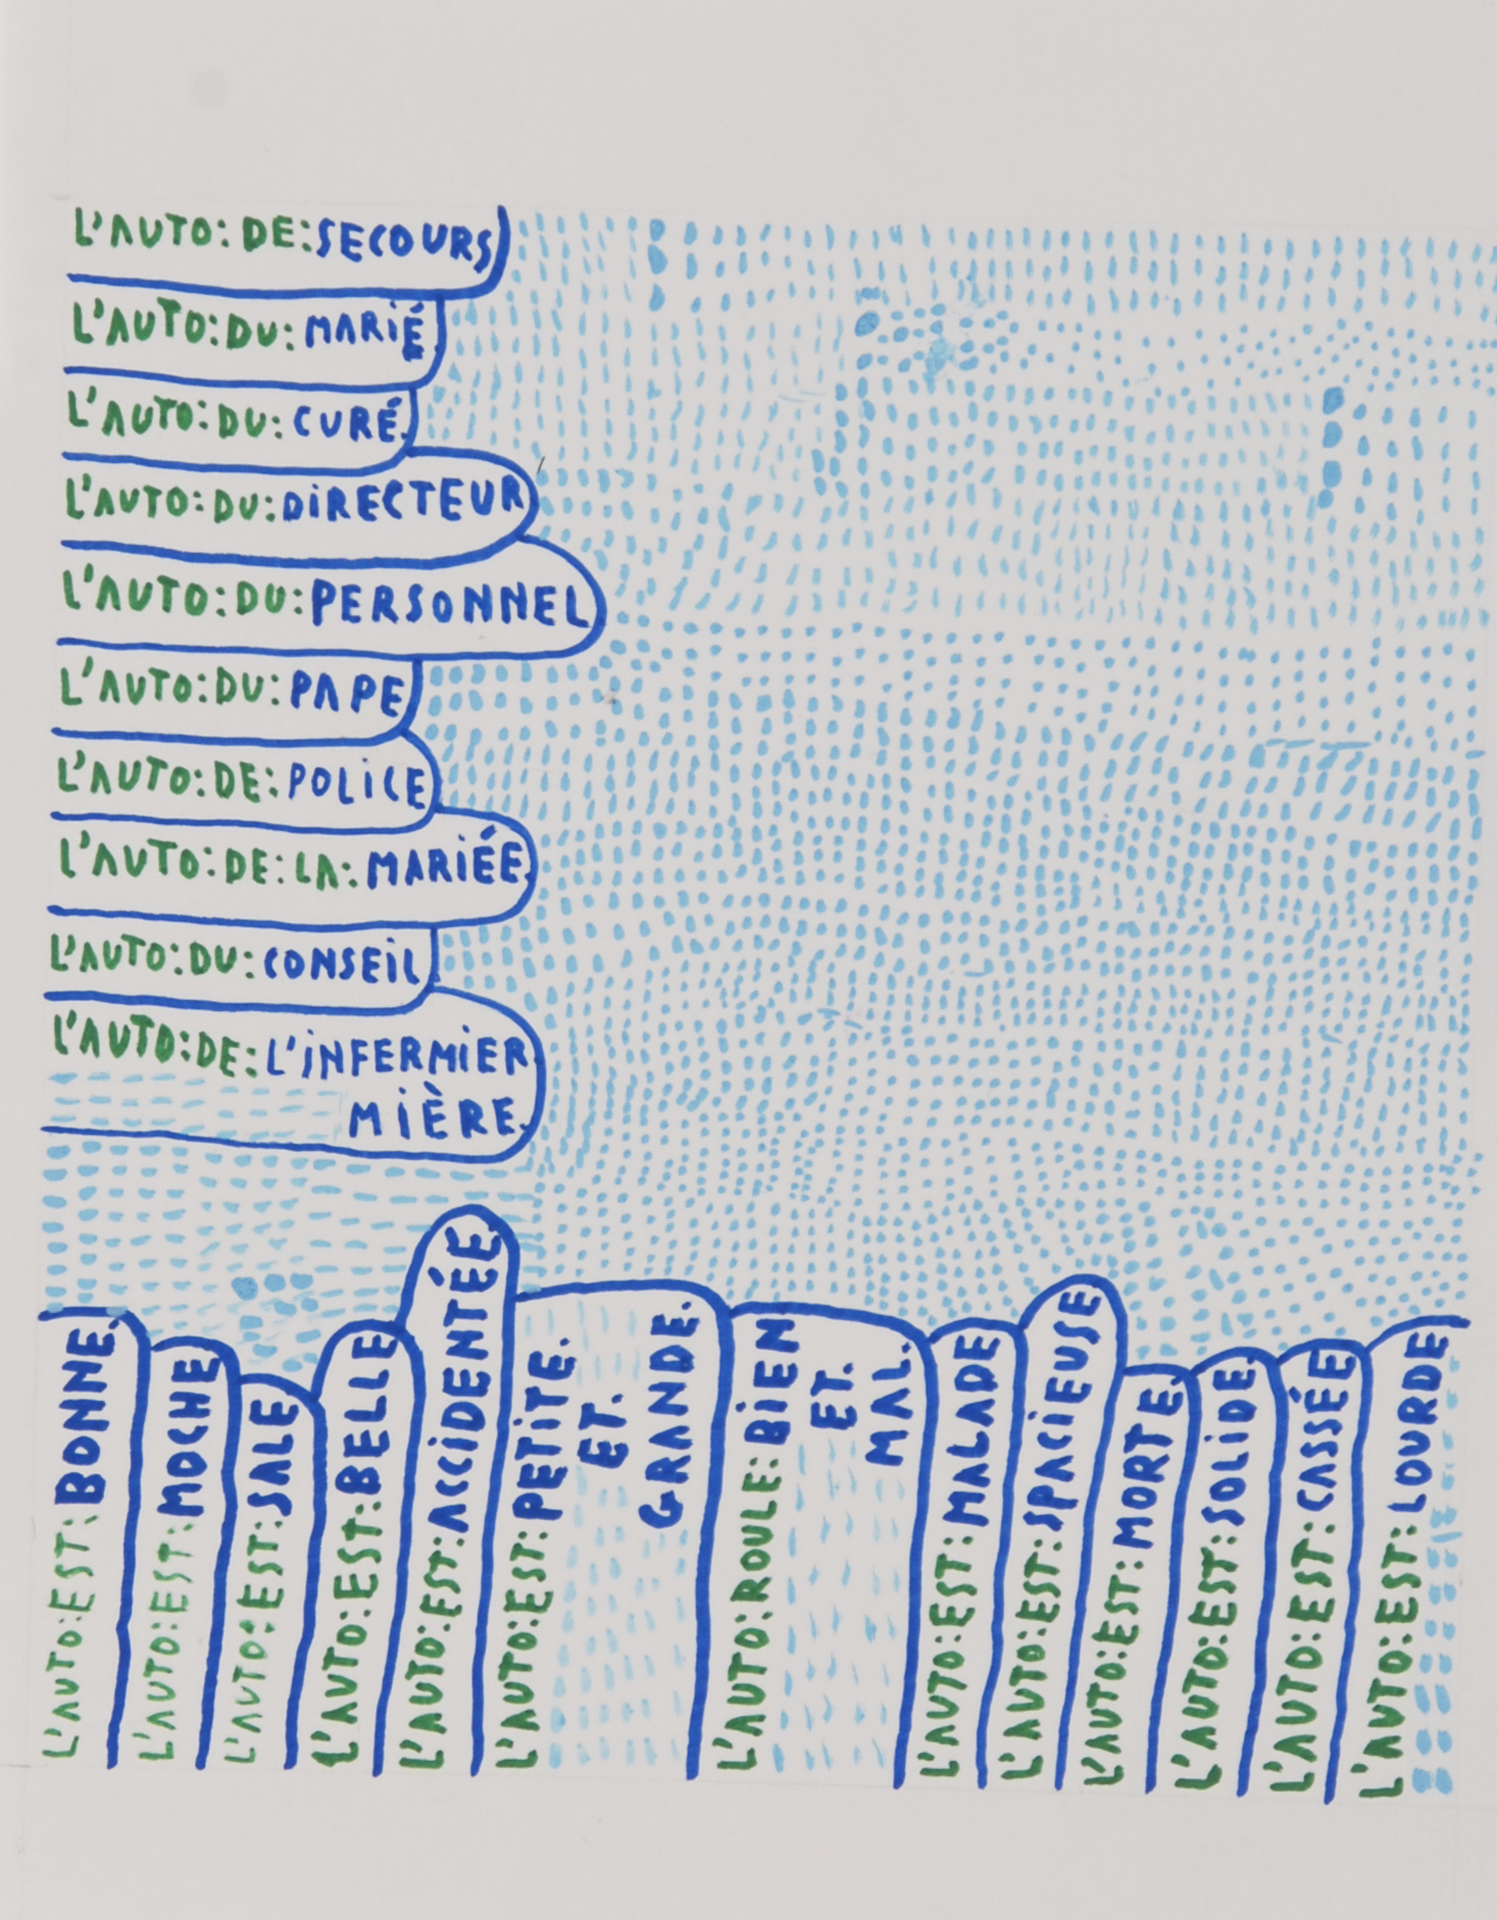 L'AUTO:DE:SECOURS
L'AUTO:DU:MARIÉ.
L'AUTO:DU:CURÉ.
L'AUTO:DU:DIRECTEUR
L'AUTO:DU:PERSONNEL
L'AUTO:DU:PAPE
L'AUTO:DE:POLICE
L'AUTO:DE:LA:MARIÉE.
L'AUTO:DU:CONSEIL
L'AUTO:DE:L'INFERMIER
MIÈRE.
L'AUTO:EST:BONNE.
L'AUTO:EST:MOCHE
L'AUTO:EST:SALE
L'AUTO:EST:BELLE
L'AUTO:EST:ACCIDENTÉE
L'AUTO:EST:PETITE.
ET.
GRANDE.
L'AUTO:ROULE:BIEN
ET.
MAL.
L'AUTO:EST:MALADE
L'AUTO:EST:SPACIEUSE
L'AUTO:EST:MORTE.
L'AUTO:EST:SOLIDE
L'AUTO:EST:CASSÉE
L'AUTO:EST:LOURDE